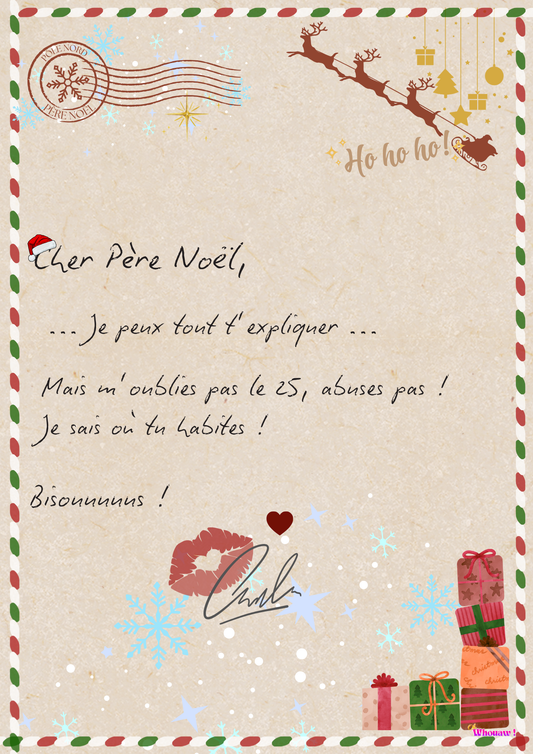 PÔLE NORD
PÈRE NOËL
Ho ho ho!
Cher Père Noël,
... Je peux tout t'expliquer ...
Mais m'oublies pas le 25, abuses pas !
Je sais où tu habites !
Bisouuuuus !
christmas
Whouaw !